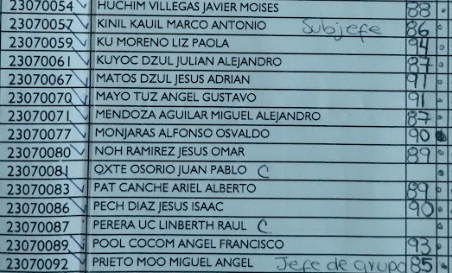 23070054 HUCHIM VILLEGAS JAVIER MOISES 88
23070057 KINIL KAUIL MARCO ANTONIO Subjefe 86
23070059 KU MORENO LIZ PAOLA 94
23070061 KUYOC DZUL JULIAN ALEJANDRO 87
23070067 MATOS DZUL JESUS ADRIAN 91
23070070 MAYO TUZ ANGEL GUSTAVO 91
23070071 MENDOZA AGUILAR MIGUEL ALEJANDRO 87
23070077 MONJARAS ALFONSO OSVALDO 90
23070080 NOH RAMIREZ JESUS OMAR 89
23070081 OXTE OSORIO JUAN PABLO C
23070083 PAT CANCHE ARIEL ALBERTO 89
23070086 PECH DIAZ JESUS ISAAC 90
23070087 PERERA UC LINBERTH RAUL C
23070089 POOL COCOM ANGEL FRANCISCO 93
23070092 PRIETO MOO MIGUEL ANGEL Jefe de grupo 85